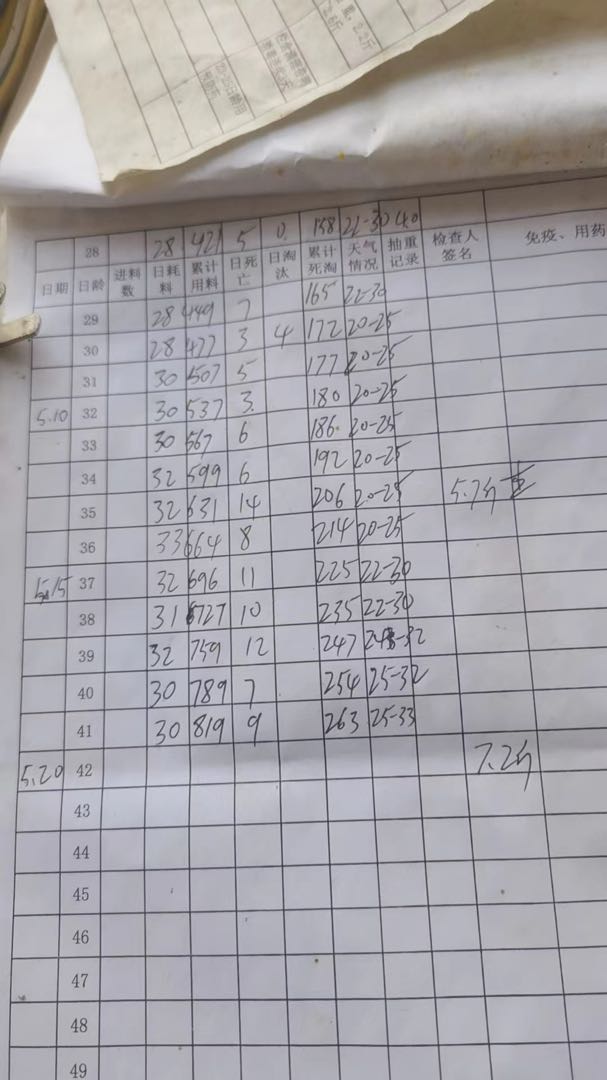 28 28 421 5 0. 158 22-30 40
日期 日龄 进料数 日耗料 累计用料 日死亡 日淘汰 累计死淘 天气情况 抽重记录 检查人签名 免疫、用药
29 28 449 7 165 22-30
30 28 477 3 4 172 20-25
31 30 507 5 177 20-25
5.10 32 30 537 3. 180 20-25
33 30 567 6 186. 20-25
34 32 599 6 192 20-25
35 32 631 14 206 20-25 5.7斤
36 33 664 8 214 20-25
5.15 37 32 696 11 225 22-30
38 31 727 10 235 22-30
39 32 759 12 247 -32
40 30 789 7 254 25-32
41 30 819 9 263 25-33
5.20 42 7.2斤
43
44
45
46
47
48
49